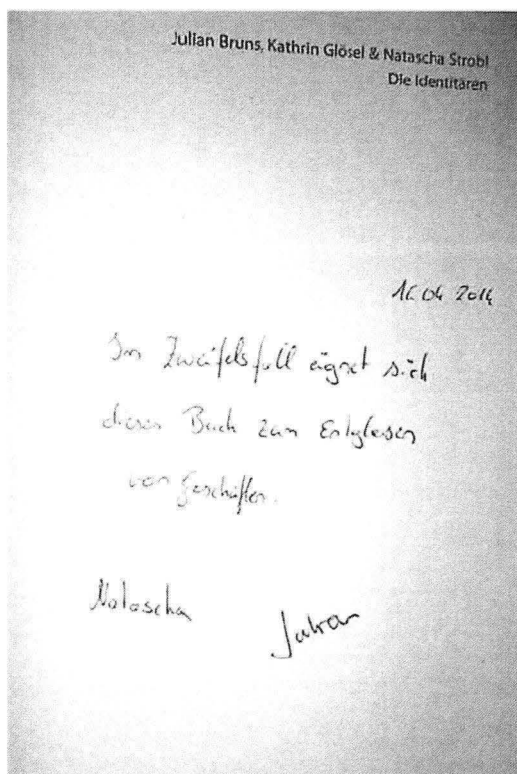 Julian Bruns, Kathrin Glösel & Natascha Strobl
Die Identitären
16 04 2014
Im Zweifelsfall eignet sich
dieses Buch zum Entglasen
von Geschäften.
Natascha
Julian